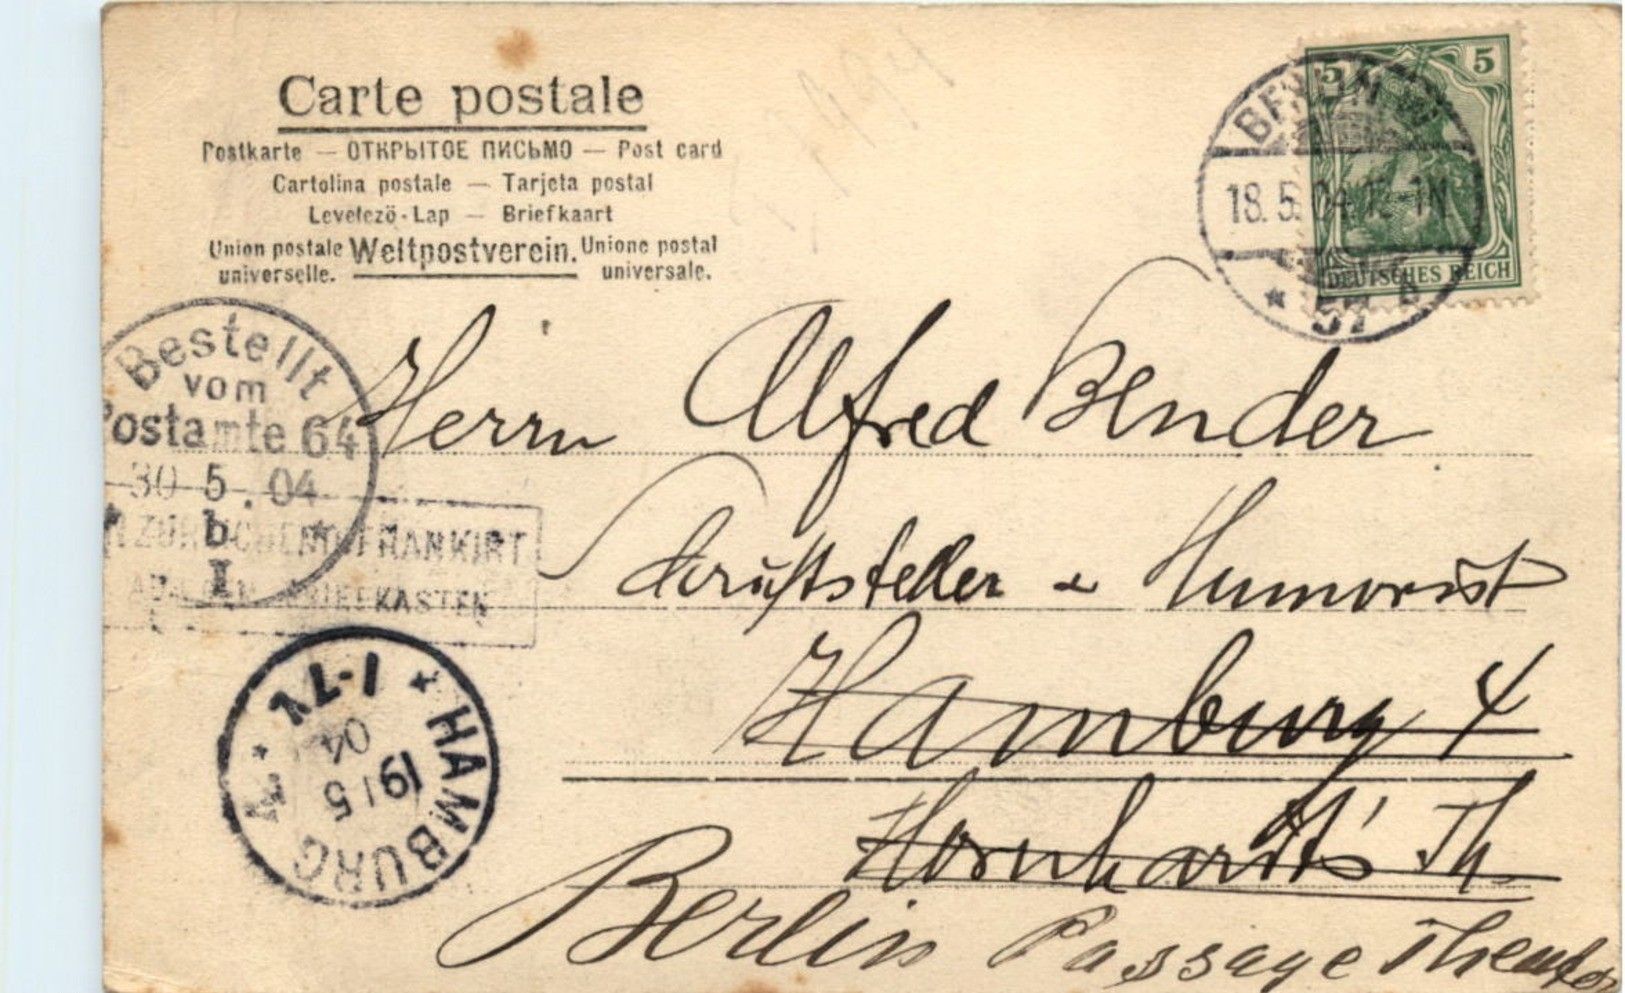 Carte postale
Postkarte — ОТКРЫТОЕ ПИСЬМО — Post card
Cartolina postale — Tarjeta postal
Levelező-Lap — Briefkaart
Union postale universelle. Weltpostverein. Unione postal universale.
5 5
DEUTSCHES REICH
BERLIN W
18.5.04.12-1N
* 57 A
Bestellt
vom
Postamte 64
30.5.04
b *
I
FRANKIRT
BRIEFKASTEN
* HAMBURG *
1-2N
19 5
04
Herrn Alfred Bender
Schriftsteller & Humorist
Hamburg 4
Hornhardt's Th.
Berlin Passage Theater